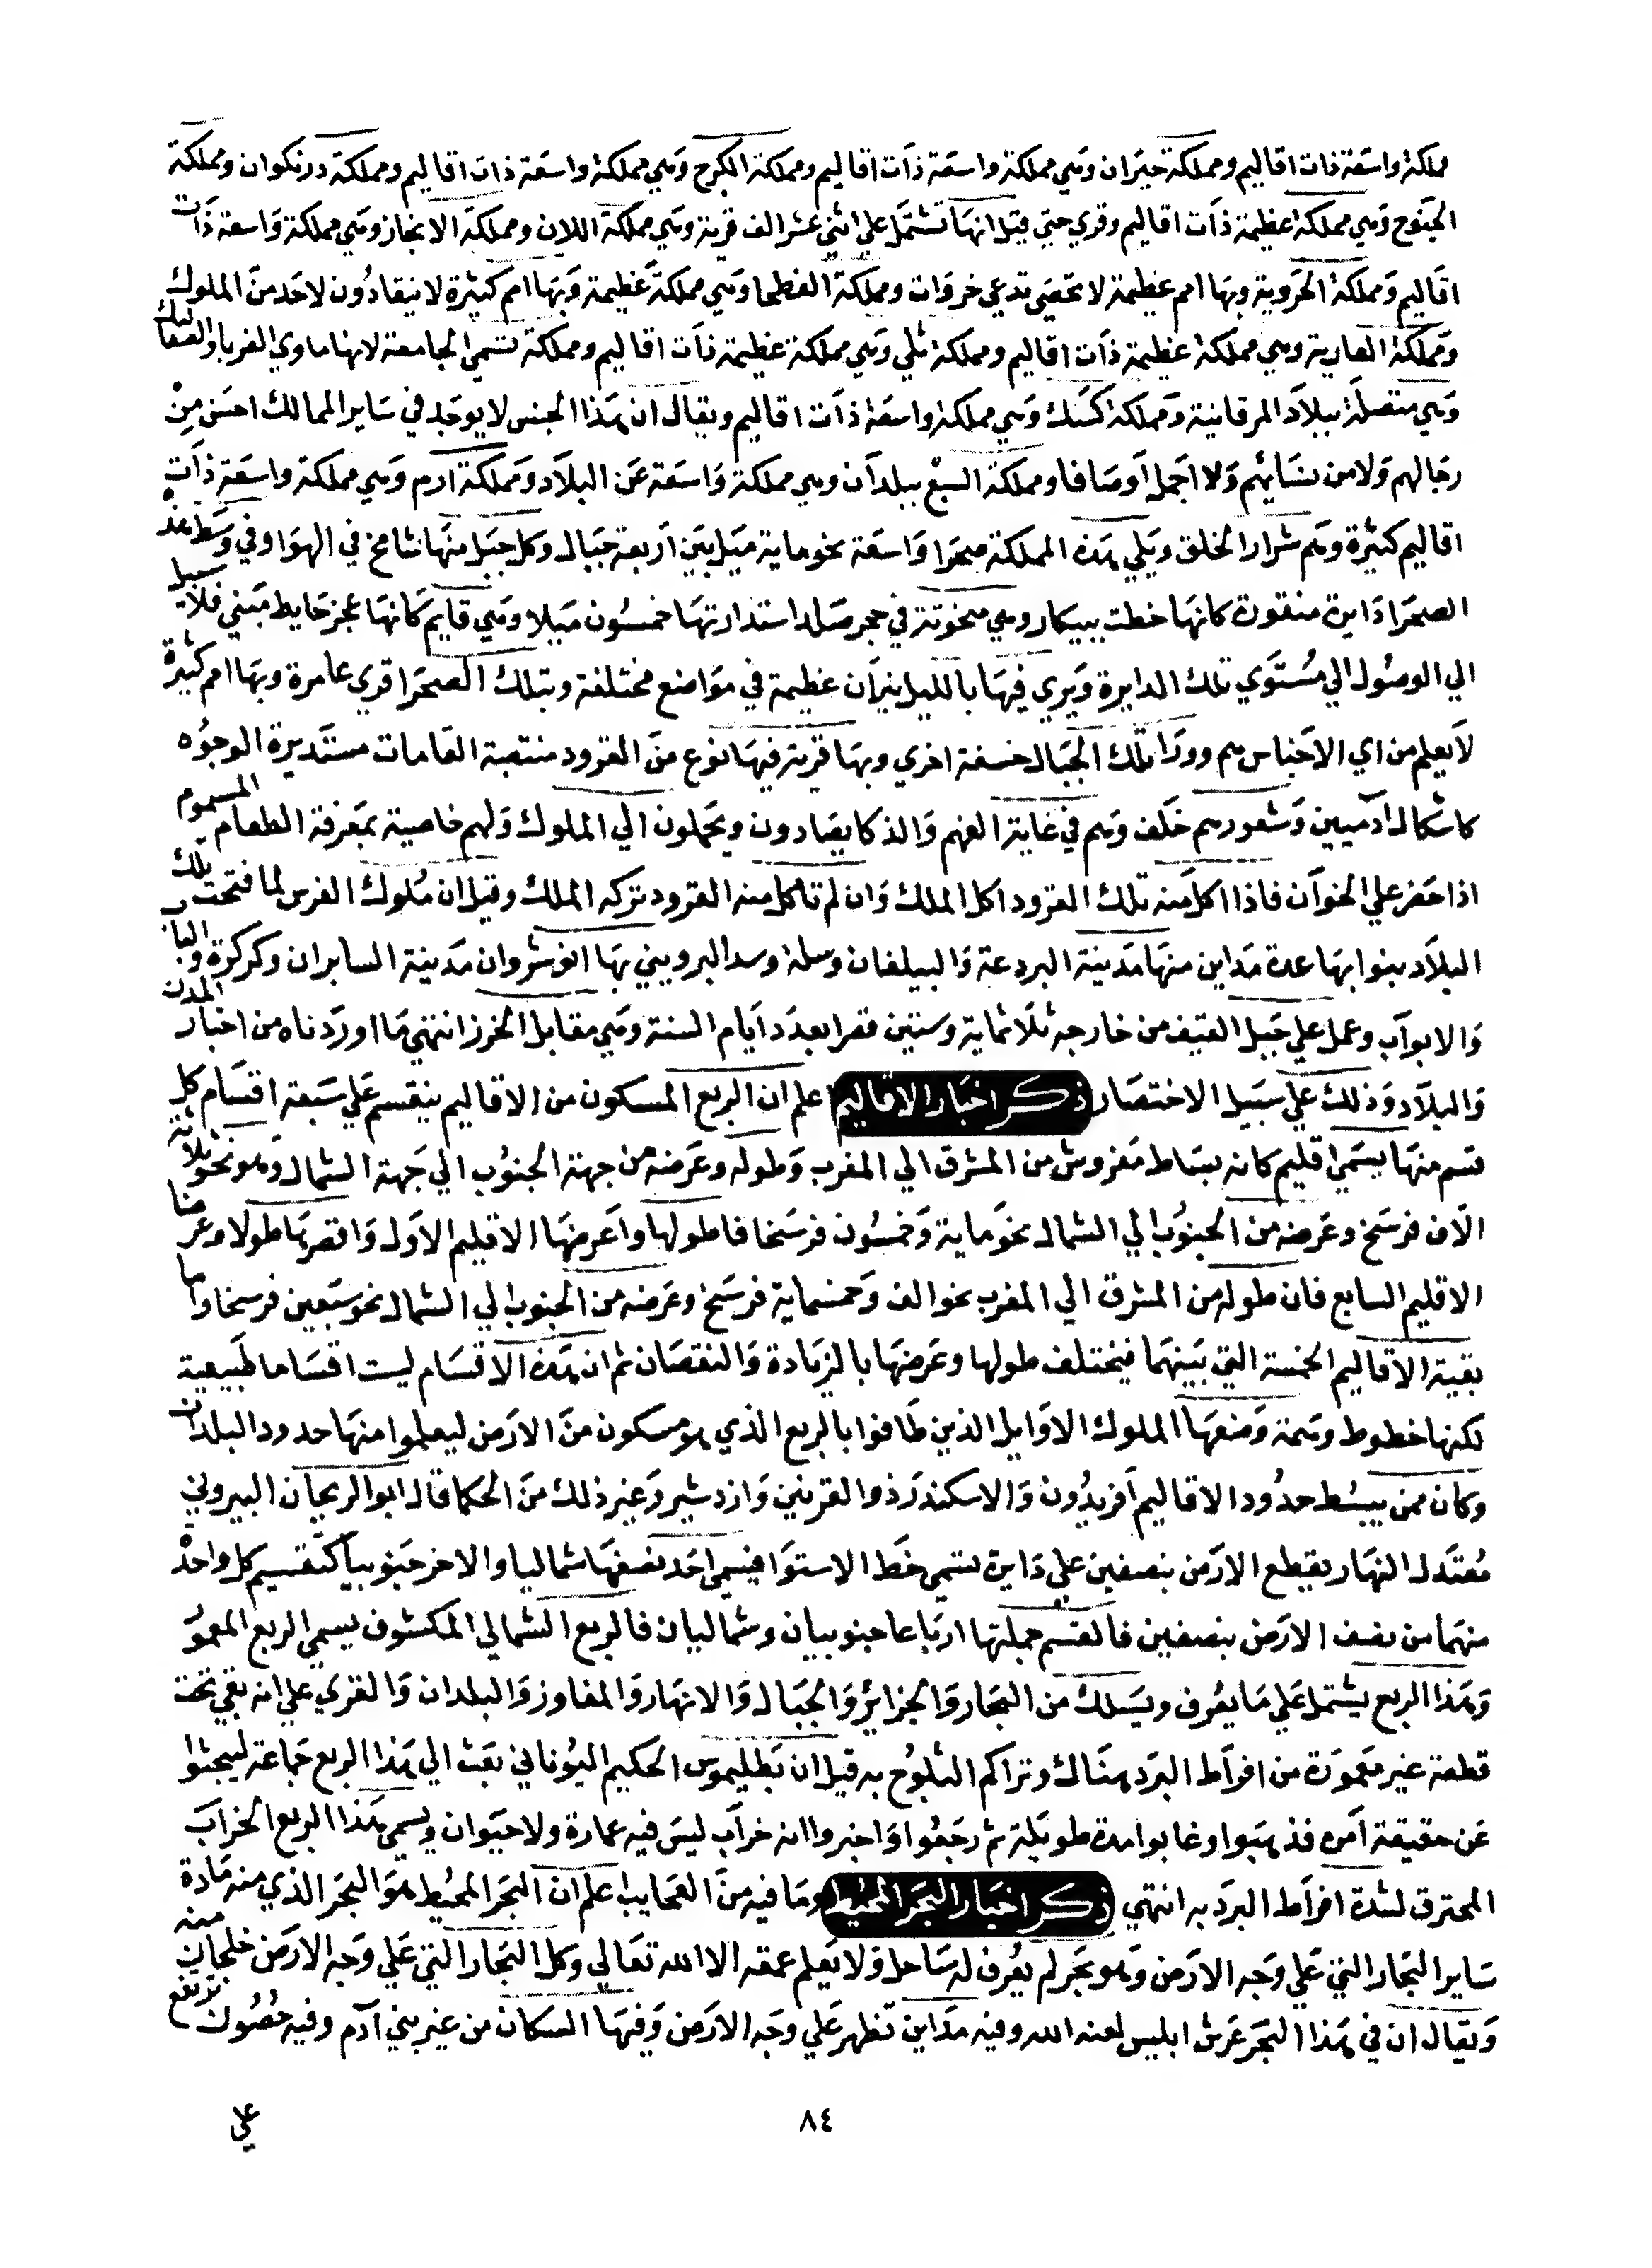 مملكة واسعة ذات اقاليم ومملكة خيزان وهي مملكة واسعة ذات اقاليم ومملكة الكرج وهي مملكة واسعة ذات اقاليم ومملكة درنكوان ومملكة
وهي مملكة عظيمة ذات اقاليم وقري حتي قيل انها تشتمل علي اثني عشر الف قرية وهي مملكة اللان ومملكة الابخاز وهي مملكة واسعة ذات
اقاليم ومملكة الخروية وبها امم عظيمة لا تحصي تدعي خروات ومملكة وهي مملكة عظيمة وبها امم كثيرة لا ينقادون لاحد من الملوك
ومملكة وهي مملكة عظيمة ذات اقاليم ومملكة وهي مملكة عظيمة ذات اقاليم ومملكة تسمي الجامعة لانها ماوي الغربا والصعاليك
وهي متصلة ببلاد ومملكة كسك وهي مملكة واسعة ذات اقاليم ويقال ان هذا الجنس لا يوجد في ساير الممالك احسن من
رجالهم ولا من نسايهم ولا اجمل اوصافا ومملكة السبع ببلدان وهي مملكة واسعة عن البلاد ومملكة ارم وهي مملكة واسعة ذات
اقاليم كثيرة وهم شرار الخلق ويلي هذه المملكة صحرا واسعة نحو ماية ميل بين اربعة جبال وكل جبل منها شامخ في الهوا وفي وسط هذه
الصحرا دايرة منقورة كانها خطت ببيكار وهي منحوتة في حجر صلد استدارتها خمسون ميلا وهي قايم كانها عجز حايط مبني فلا سبيل
الي الوصول الي مستوي تلك الدايرة ويري فيها بالليل نيران عظيمة في مواضع مختلفة وبتلك الصحرا قري عامرة وبها امم كثيرة
لا يعلم من اي الاجناس هم وورا تلك الجبال خسفة اخري وبها قرية فيها نوع من القرود منتصبة القامات مستديرة الوجوه
كاشكال ادميين وشعورهم خلف وهم في غاية الفهم والذكا يصادون ويحملون الي الملوك ولهم خاصية بمعرفة الطعام المسموم
اذا حضر علي الخوان فاذا اكل منه تلك القرود اكل الملك وان لم تاكل منه القرود تركه الملك وقيل ان ملوك الفرس لما فتحت تلك
البلاد بنوا بها عدة مداين منها مدينة البردعة والبيلقان وسد البر وبني بها انوشروان مدينة السابران وكركرة والباب
والابواب وعمل علي جبل من خارجه ثلاثماية وستين قصرا بعدد ايام السنة وهي مقابل الخزر انتهي ما اوردناه من اخبار المدن
والبلاد وذلك علي سبيل الاختصار ذكر اخبار الاقاليم اعلم ان الربع المسكون من الاقاليم ينقسم علي سبعة اقسام كل
قسم منها يسمي اقليم كانه بساط مفروش من المشرق الي المغرب وطوله وعرضه من جهة الجنوب الي جهة الشمال وهو نحو ثلاثة
الاف فرسخ وعرضه من الجنوب الي الشمال نحو ماية وخمسون فرسخا فاطولها واعرضها الاقليم الاول واقصرها طولا وعرضا
الاقليم السابع فان طوله من المشرق الي المغرب نحو الف وخمسماية فرسخ وعرضه من الجنوب الي الشمال نحو سبعين فرسخا واما
بقية الاقاليم الخمسة التي بينهما فيختلف طولها وعرضها بالزيادة والنقصان ثم ان هذه الاقسام ليست اقساما طبيعية
لكنها خطوط وهمة وضعها الملوك الاوايل الذين طافوا بالربع الذي هو مسكون من الارض ليعلموا منها حدود البلدان
وكان ممن يبسط حدود الاقاليم افريدون والاسكندر ذو القرنين وازدشير وغير ذلك من الحكما قال ابو الريحان البيروني
معتدل النهار يقطع الارض بنصفين علي دايرة تسمي خط الاستوا فيسمي احد نصفها شماليا والاخر جنوبيا كتقسيم كل واحد
منهما من نصف الارض بنصفين فالقسم جملتها ارباعا جنوبيان وشماليان فالربع الشمالي المكشوف يسمي الربع المعمور
وهذا الربع يشتمل علي ما يعرف ويسلك من البحار والجزائر والجبال والانهار والمفاوز والبلدان والقري علي انه بقي تحت
قطعة غير معمورة من افراط البرد هناك وتراكم الثلوج به قيل ان بطليموس الحكيم اليوناني بعث الي هذا الربع جماعة ليبحثوا
عن حقيقة امره فذهبوا وغابوا مدة طويلة ثم رجعوا واخبروا انه خراب ليس فيه عمارة ولا حيوان ويسمي هذا الربع الخراب
المحترق لشدة افراط البرد به انتهي ذكر اخبار البحر المحيط وما فيه من العجايب اعلم ان البحر المحيط هو البحر الذي منه مادة
ساير البحار التي علي وجه الارض وهو بحر لم يعرف له ساحل ولا يعلم عمقه الا الله تعالي وكل البحار التي علي وجه الارض خلجان منه
ويقال ان في هذا البحر عرش ابليس لعنه الله وفيه مداين تظهر علي وجه الارض وفيها السكان من غير بني آدم وفيه حصون ترتفع
٨٤
علي